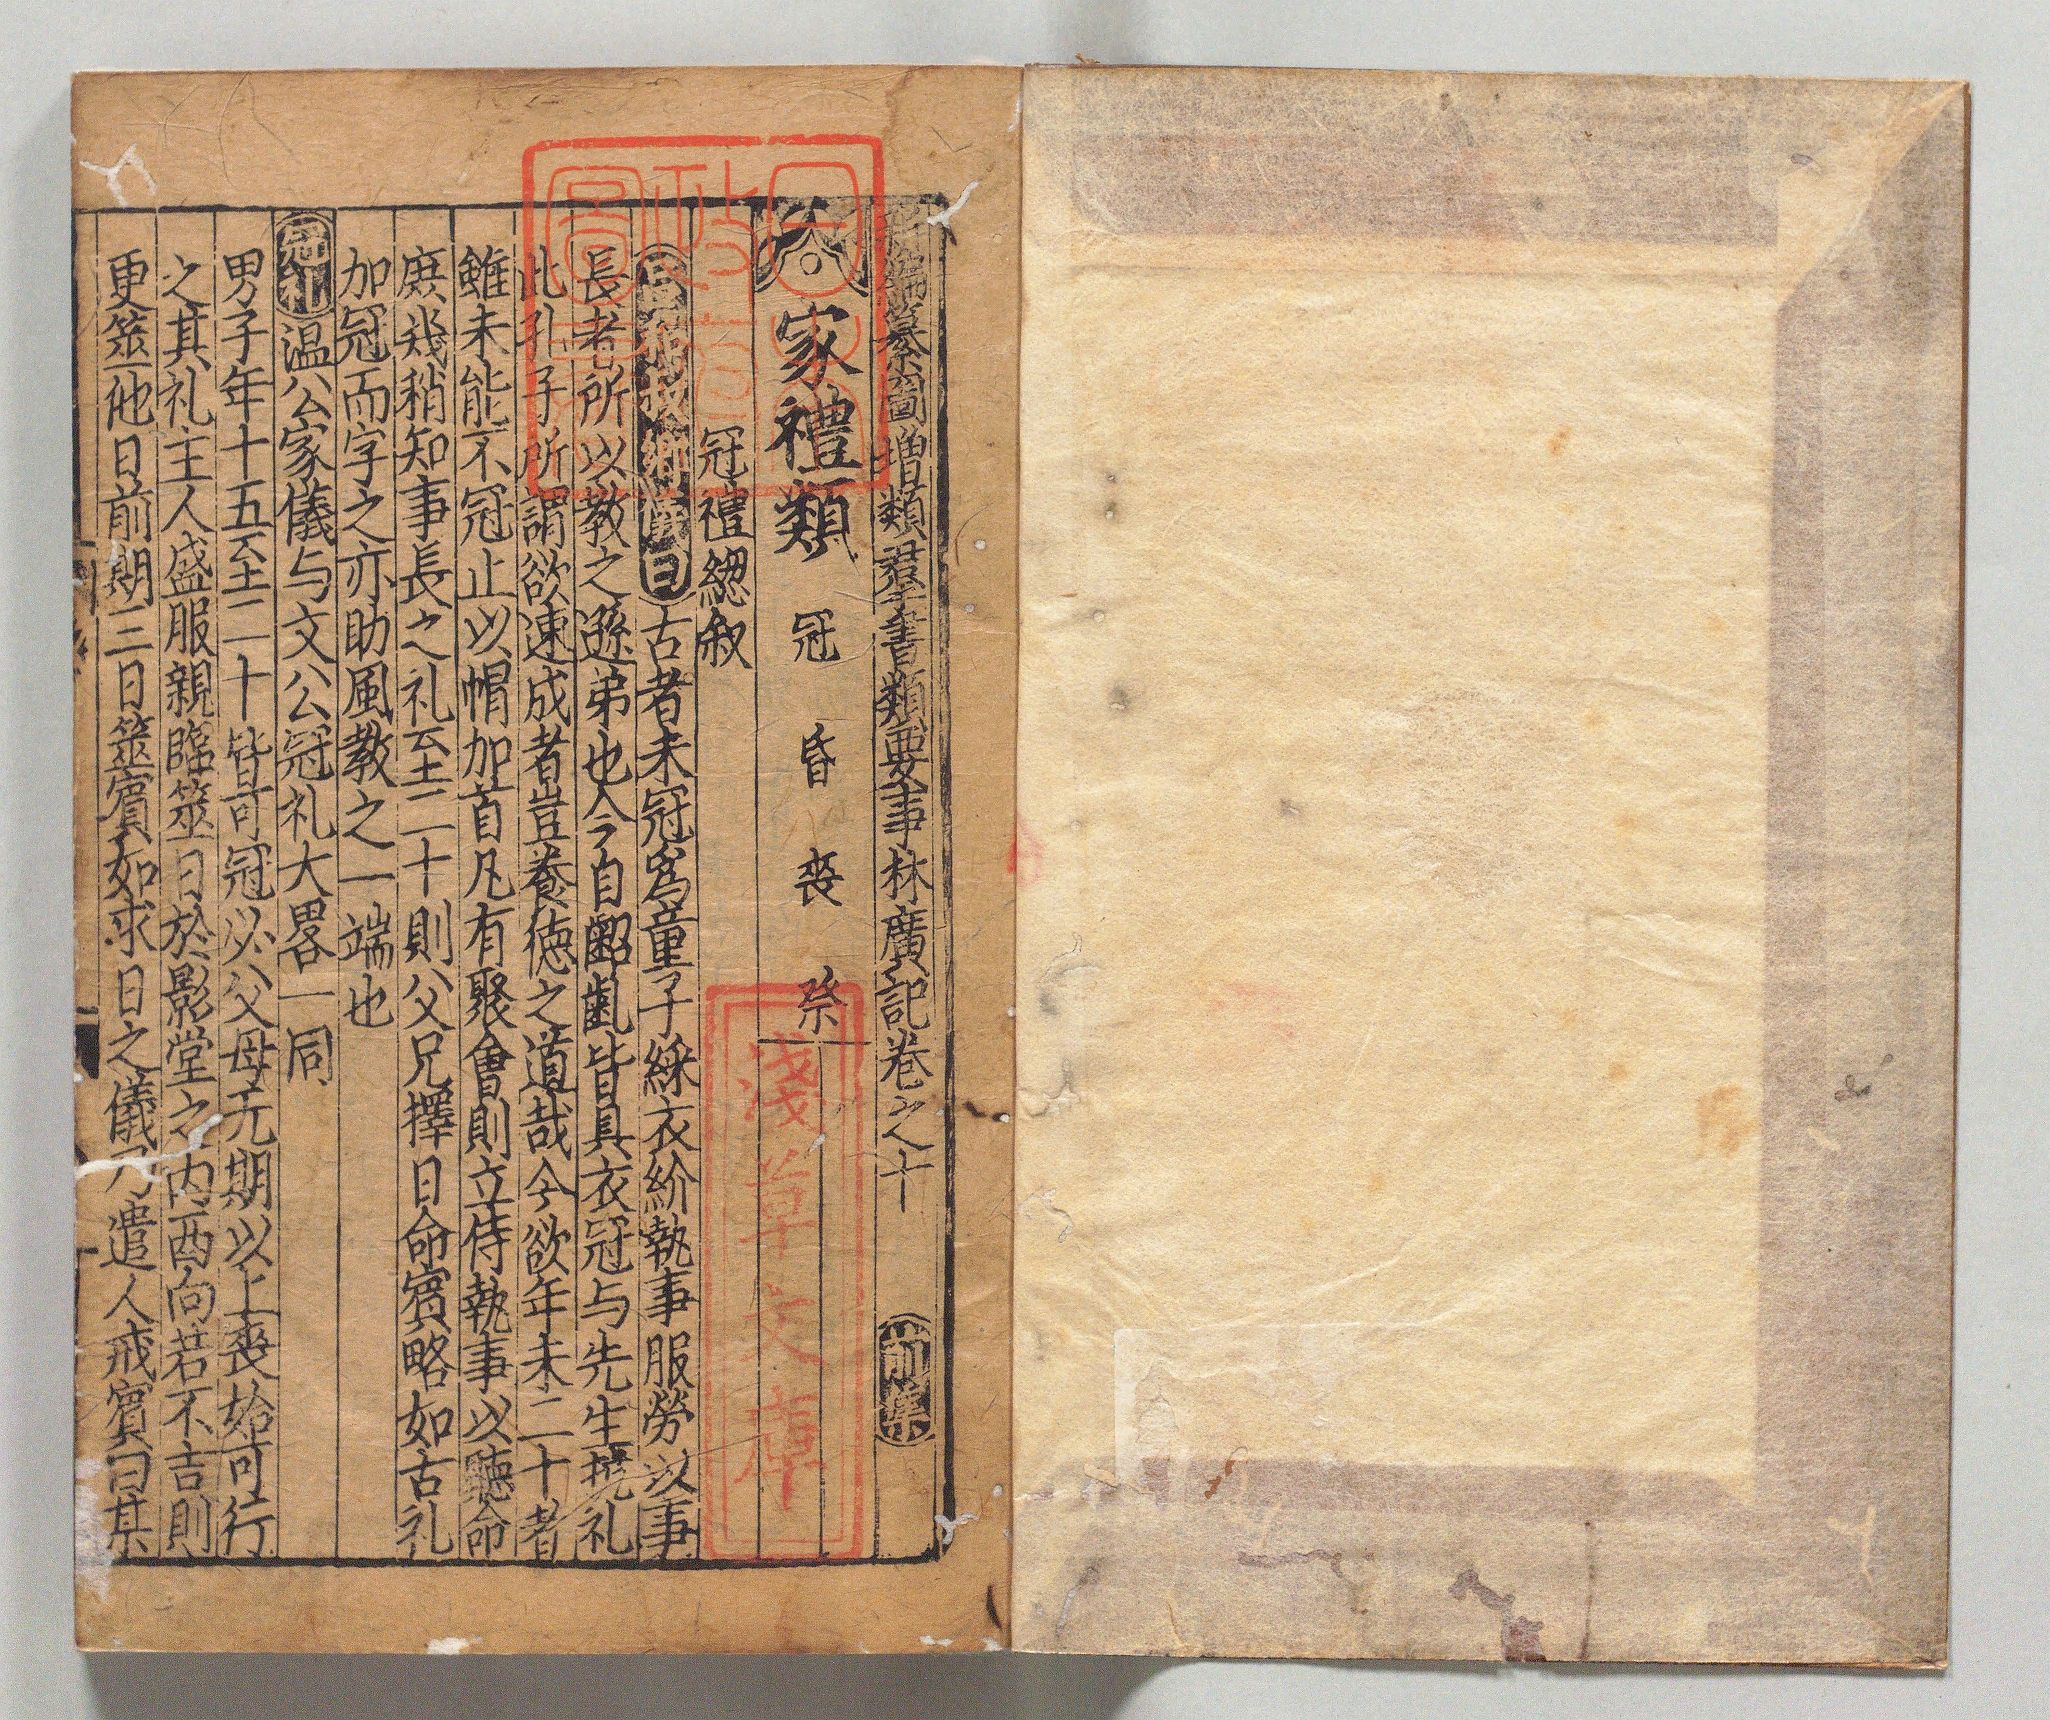 新編纂圖增類羣書類要事林廣記卷之十 前集
家禮類 冠 昏 喪 祭
冠禮緫叙
吕 鄉 曰古者未冠爲童子綵衣紒執事服勞以事
長者所以教之遜弟也今自齠齔皆具衣冠与先生抗礼
此孔子所謂欲速成者豈養德之道哉今欲年未二十者
雖未能不冠止以帽加首凡有聚會則立侍執事以聽命
庶幾稍知事長之礼至二十則父兄擇日命賓略如古礼
加冠而字之亦助風教之一端也
冠礼 温公家儀与文公冠礼大畧一同
男子年十五至二十皆可冠必父母无期以上喪始可行
之其礼主人盛服親臨筮日於影堂之内西向若不吉則
更筮他日前期三日筮賓如求日之儀乃遣人戒賓曰某
日本政府圖書
淺草文庫